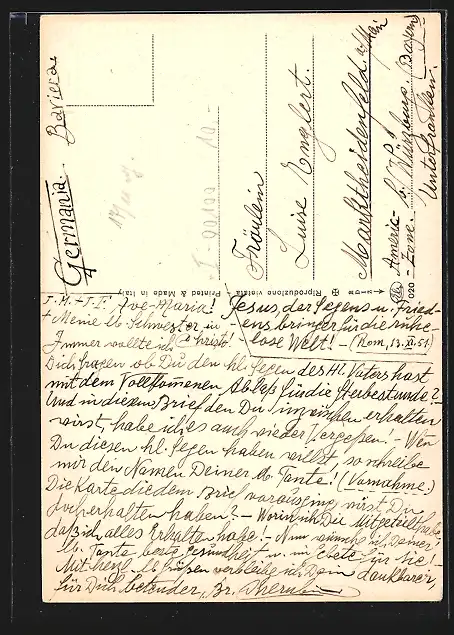 Germania. Baviera
Fräulein
Luise Englert.
Marktheidenfeld a/Main
Americ-
Zone. b/ Würzburg (Bayern)
Unterfranken.
Printed & Made in Italy
Riproduzione vietata
020
J. M. + J. F. Ave-Maria! Jesus, der Segens u. Fried-
+ Meine lb. Schwester in ensbringer für die ruhe-
Immer wollte ich Christo! lose Welt! - (Rom, 13. XI. 51.)
Dich fragen ob Du den hl. Segen des Hl. Vaters hast
mit dem Vollkomenen Ablaß für die Sterbestunde?
Und in diesem Brief den Du inzwischen erhalten
wirst, habe ich es auch wieder Vergeßen! - Wen
Du diesen hl. Segen haben willst, so schreibe
mir den Namen Deiner lb. Tante! (Vorname.)
Die Karte, die dem Brief vorausging, wirst Du
doch erhalten haben? - Worin ich Dir Mitgeteilt habe,
daß ich alles Erhalten habe! - Nun wünsche ich Deiner
lb. Tante beste Gesundheit u. im Gebete für Sie! -
Mit herzl. lb. Grüßen verbleibe ich Dein dankbarer,
für Dich betender, Br.